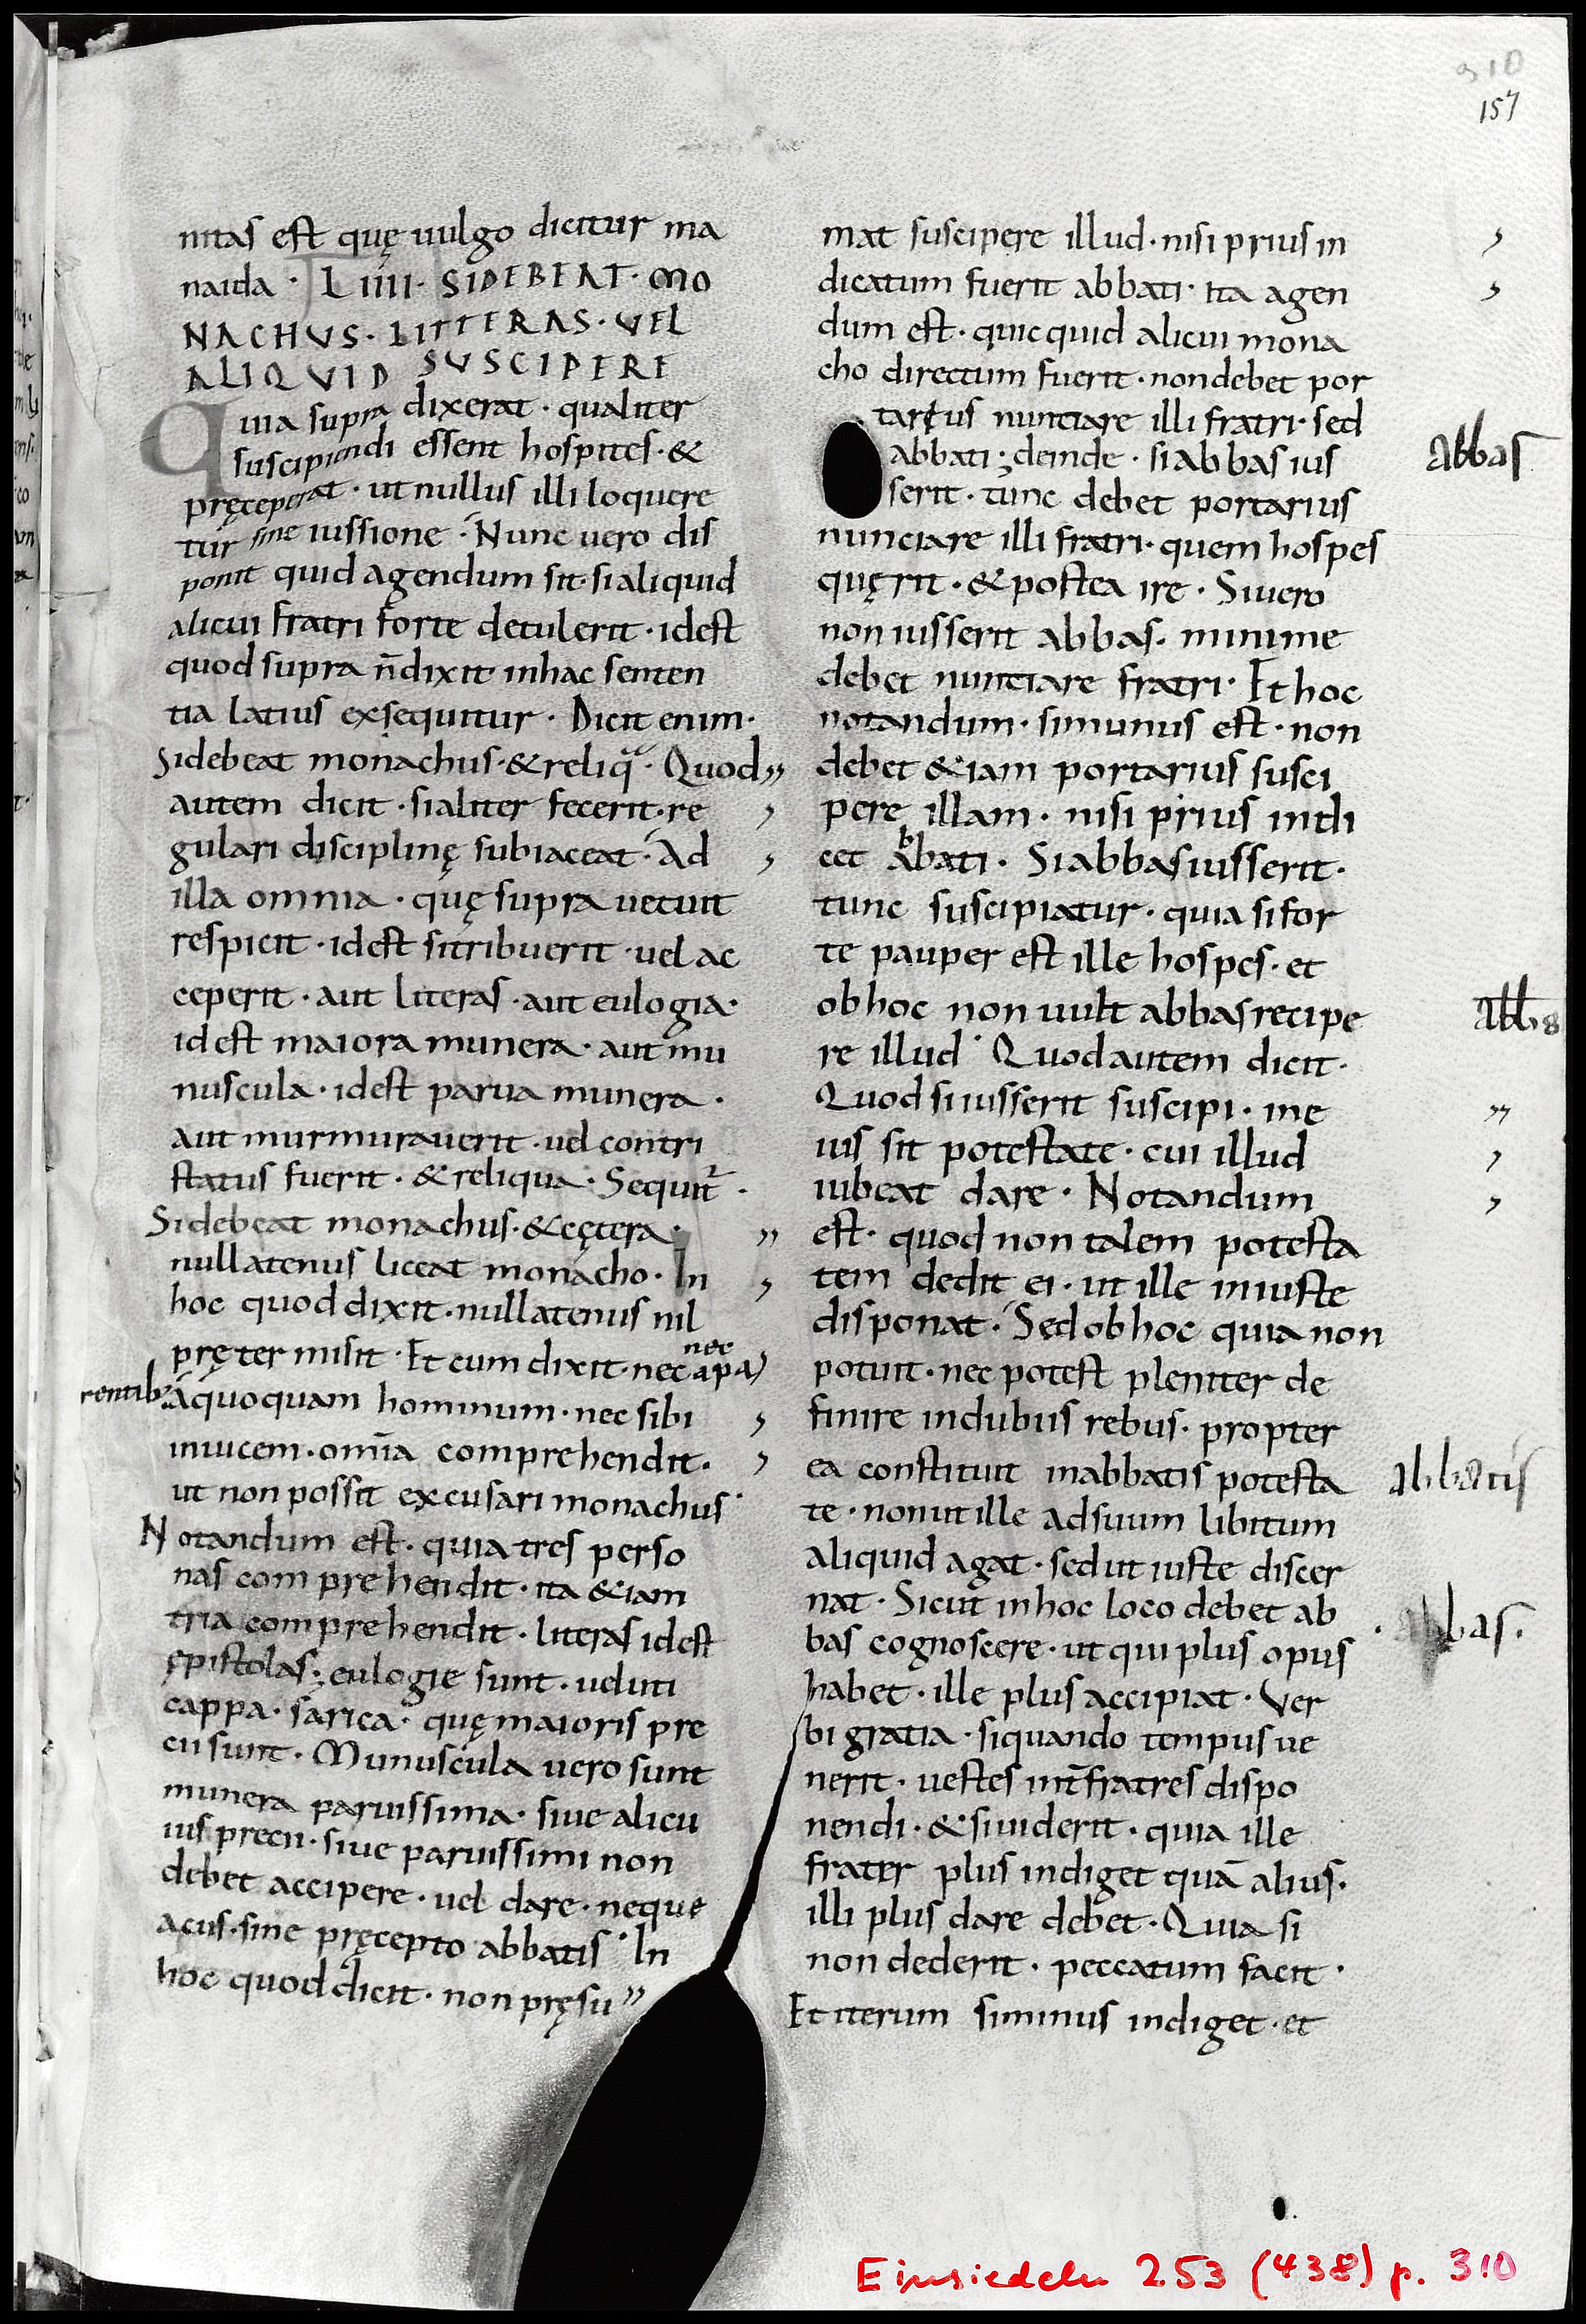 310
157
nitas est quę uulgo dicitur ma
naida · LIIII · SIDEBEAT · MO
NACHUS · LITTERAS · VEL
ALIQVID SVSCIPERE
Quia supra dixerat · qualiter
suscipiendi essent hospites · &
pręceperat · ut nullus illi loquere
tur sine iussione · Nunc uero dis
ponit quid agendum sit · si aliquid
alicui fratri forte detulerit · idest
quod supra n̄ dixit in hac senten
tia latius exsequitur · Dicit enim ·
Si debeat monachus · & reliq̄ · Quod ,,
autem dicit · si aliter fecerit · re ,
gulari disciplinę subiaceat · Ad ,
illa omnia · quę supra uetuit
respicit · idest si tribuerit · uel ac
ceperit · aut literas · aut eulogia ·
idest maiora munera · aut mu
nuscula · idest parua munera ·
aut murmurauerit · uel contri
status fuerit · & reliqua · Sequit᷑ ·
Si debeat monachus · & cętera · ,,
nullatenus liceat monacho · In ,
hoc quod dixit · nullatenus nil
pręter misit · Et cum dixit · nec a pa
nec
rentib; a quoquam hominum · nec sibi ,
inuicem · omīa comprehendit · ,
ut non possit excusari monachus ·
Notandum est · quia tres perso
nas comprehendit · ita &iam
tria comprehendit · literas idest
ępistolas ; eulogie sunt · ueluti
cappa · sarica · quę maioris pre
cii sunt · Munuscula uero sunt
munera paruissima · siue alicu
ius precii · siue paruissimi non
debet accipere · uel dare · neque
acus · sine pręcepto abbatis · In
hoc quod dicit · non pręsu ,,
mat suscipere illud · nisi prius in ,
dicatum fuerit abbati · ita agen ,
dum est · quicquid alicui mona
cho directum fuerit · non debet por
tarius nunciare illi fratri · sed
abbati ; deinde · si abbas ius abbas
serit · tunc debet portarius
nunciare illi fratri · quem hospes
quęrit · & postea ire · Si uero
non iusserit abbas · minime
debet nunciare fratri · Et hoc
notandum · si munus est · non
debet &iam portarius susci
pere illam · nisi prius indi
cet abbati · Si abbas iusserit ·
tunc suscipiatur · quia si for
te pauper est ille hospes · et
ob hoc non uult abbas recipe
re illud · Quod autem dicit ·
Quod si iusserit suscipi · ine ,,
ius sit potestate · cui illud ,
iubeat dare · Notandum ,
est · quod non talem potesta
tem dedit ei · ut ille iniuste
disponat · Sed ob hoc quia non
potuit · nec potest pleniter de
finire in dubiis rebus · propter
ea constituit in abbatis potesta abbatis
te · non ut ille ad suum libitum
aliquid agat · sed ut iuste discer
nat · Sicut in hoc loco debet ab
bas cognoscere · ut qui plus opus abbas.
habet · ille plus accipiat · Ver
bi gratia · si quando tempus ue
nerit · uestes int̄ fratres dispo
nendi · & si uiderit · quia ille
frater plus indiget quā alius ·
illi plus dare debet · Quia si
non dederit · peccatum facit ·
Et iterum si minus indiget · et
Einsiedeln 253 (438) p. 310